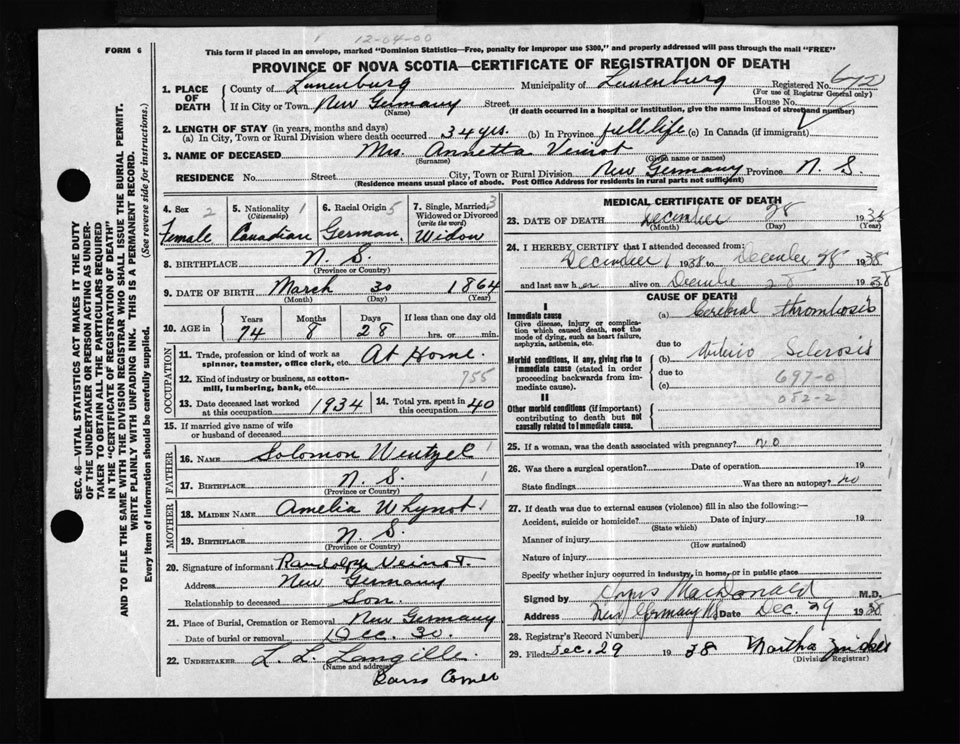 12-04-00
FORM 6
This form if placed in an envelope, marked "Dominion Statistics—Free, penalty for improper use $300," and properly addressed will pass through the mail "FREE"
PROVINCE OF NOVA SCOTIA—CERTIFICATE OF REGISTRATION OF DEATH
SEC. 46—VITAL STATISTICS ACT MAKES IT THE DUTY
OF THE UNDERTAKER OR PERSON ACTING AS UNDER-
TAKER TO OBTAIN ALL THE PARTICULARS REQUIRED
IN THE "CERTIFICATE OF REGISTRATION OF DEATH"
AND TO FILE THE SAME WITH THE DIVISION REGISTRAR WHO SHALL ISSUE THE BURIAL PERMIT.
WRITE PLAINLY WITH UNFADING INK. THIS IS A PERMANENT RECORD.
Every item of information should be carefully supplied. (See reverse side for instructions.)
1. PLACE OF DEATH County of Lunenburg Municipality of Lunenburg Registered No.
(For use of Registrar General only)
If in City or Town New Germany Street House No.
(Name) (If death occurred in a hospital or institution, give the name instead of street and number)
2. LENGTH OF STAY (in years, months and days)
(a) In City, Town or Rural Division where death occurred 34 yrs. (b) In Province full life (c) In Canada (if immigrant)
3. NAME OF DECEASED Mrs. Annetta Veinot
(Surname) (Given name or names)
RESIDENCE No. Street City, Town or Rural Division New Germany Province N. S.
(Residence means usual place of abode. Post Office Address for residents in rural parts not sufficient)
4. Sex 2 Female
5. Nationality 1 (Citizenship) Canadian
6. Racial Origin 5 German
7. Single, Married, 3 Widowed or Divorced (write the word) Widow
8. BIRTHPLACE N. S.
(Province or Country)
9. DATE OF BIRTH March 30 1864
(Month) (Day) (Year)
10. AGE in Years Months Days If less than one day
74 8 28 hrs. or min.
OCCUPATION
11. Trade, profession or kind of work as spinner, teamster, office clerk, etc. At Home.
12. Kind of industry or business, as cotton-mill, lumbering, bank, etc. 755
13. Date deceased last worked at this occupation 1934 14. Total yrs. spent in this occupation 40
15. If married give name of wife or husband of deceased
FATHER
16. NAME Solomon Wentzel 1
17. BIRTHPLACE N. S. 1
(Province or Country)
MOTHER
18. MAIDEN NAME Amelia Whynot 1
19. BIRTHPLACE N. S.
(Province or Country)
20. Signature of informant Randolph Veinot.
Address New Germany
Relationship to deceased Son.
21. Place of Burial, Cremation or Removal New Germany
Date of burial or removal Dec. 30.
22. UNDERTAKER L. L. Langille
(Name and address)
Barss Corner
MEDICAL CERTIFICATE OF DEATH
23. DATE OF DEATH December 28 1938
(Month) (Day) (Year)
24. I HEREBY CERTIFY that I attended deceased from:
December 1 1938 to December 28 1938
and last saw her alive on December 28 1938
CAUSE OF DEATH
I
Immediate cause
Give disease, injury or complication which caused death, not the mode of dying, such as heart failure, asphyxia, asthenia, etc.
(a) Cerebral thrombosis
due to
Morbid conditions, if any, giving rise to immediate cause (stated in order proceeding backwards from immediate cause).
(b) Arterio Sclerosis
due to
(c) 697-0
082-2
II
Other morbid conditions (if important) contributing to death but not causally related to immediate cause.
25. If a woman, was the death associated with pregnancy? no
26. Was there a surgical operation? Date of operation 19
State findings Was there an autopsy? no
27. If death was due to external causes (violence) fill in also the following:—
Accident, suicide or homicide? Date of injury 19
(State which)
Manner of injury
(How sustained)
Nature of injury
Specify whether injury occurred in industry, in home, or in public place
Signed by MacDonald M.D.
Address New Germany NS Date Dec. 29 1938
28. Registrar's Record Number
29. Filed Dec. 29 1938 Martha
(Division Registrar)